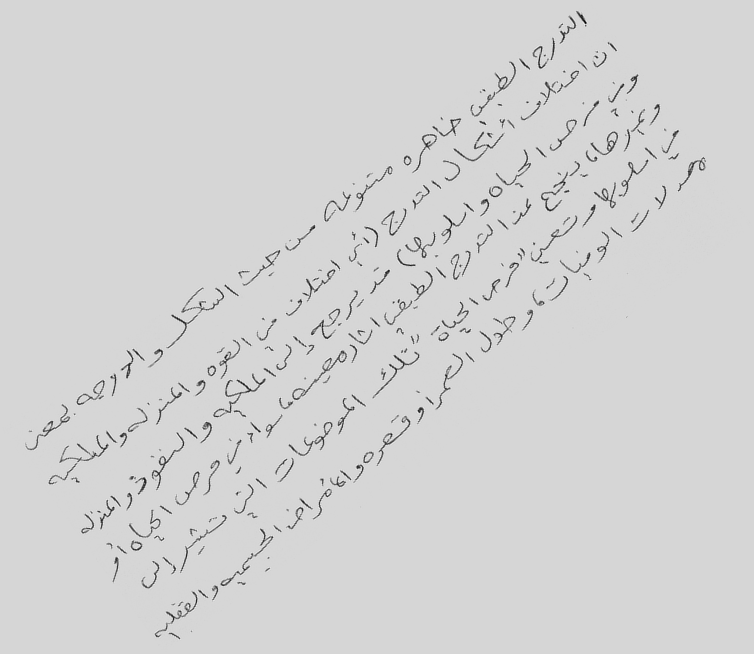 التدرج الطبقى ظاهره متنوعه من حيث الشكل والدرجه بمعنى
ان اختلاف أشكال التدرج (أى اختلاف فى القوه والمنزله والملكيه
وفى فرص الحياه واسلوبها) قد يرجع إلى الملكيه والنفوذ والمنزله
وغيرها، ينجح عند التدرج الطبقى اثاره معينه، سواء فى فرص الحياه أو
فى اسلوبها وتعنى "فرص الحياة" تلك الموضوعات التى تشير إلى
معدلات الوفيات، وطول العمر أو قصره والأمراض الجسميه والعقليه